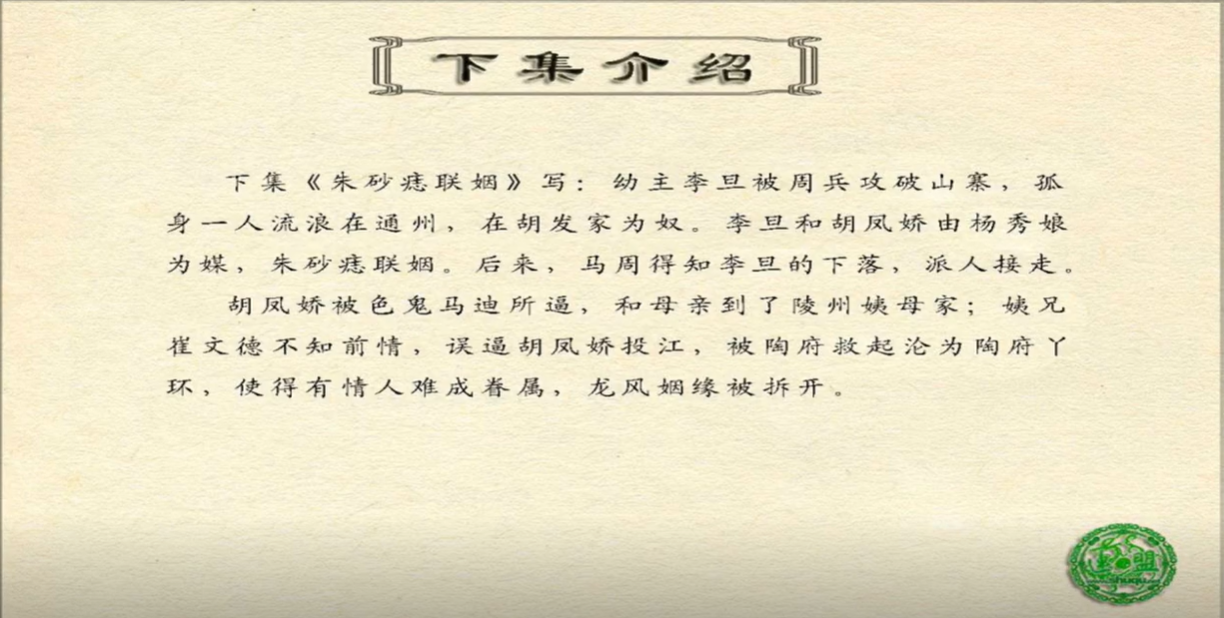 下集介绍
下集《朱砂痣联姻》写：幼主李旦被周兵攻破山寨，孤
身一人流浪在通州，在胡发家为奴。李旦和胡凤娇由杨秀娘
为媒，朱砂痣联姻。后来，马周得知李旦的下落，派人接走。
胡凤娇被色鬼马迪所逼，和母亲到了陵州姨母家；姨兄
崔文德不知前情，误逼胡凤娇投江，被陶府救起沦为陶府丫
环，使得有情人难成眷属，龙风姻缘被拆开。
盟
shuqu